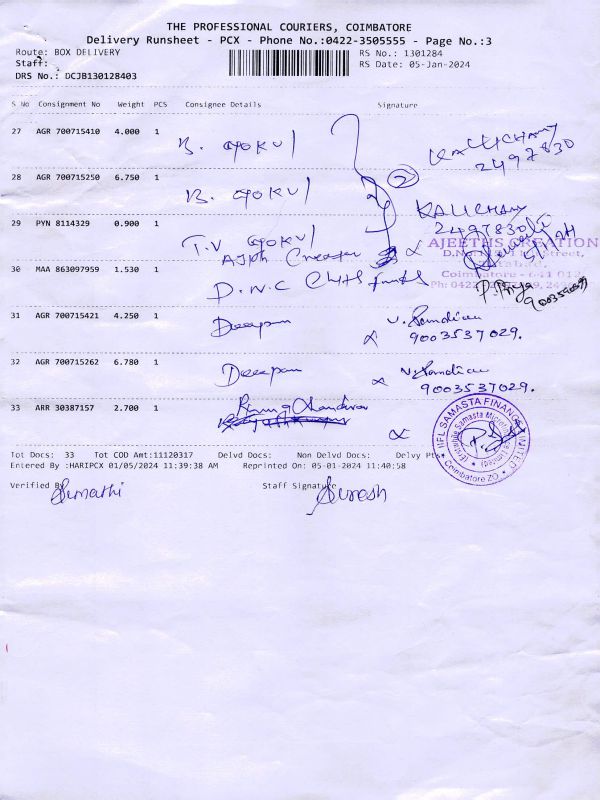 THE PROFESSIONAL COURIERS, COIMBATORE
Delivery Runsheet - PCX - Phone No.:0422-3505555 - Page No.:3
Route: BOX DELIVERY
RS No.: 1301284
Staff:
RS Date: 05-Jan-2024
DRS No.: DCJB130128403
S No Consignment No Weight PCS Consignee Details Signature
27 AGR 700715410 4.000 1 B. GOKUL KALICHAMY
2497830
28 AGR 700715250 6.750 1 B. GOKUL 2 KALICHAMY
2497830
29 PYN 8114329 0.900 1 T.V GOKUL
AJEETHS CREATION
30 MAA 863097959 1.530 1 D.N.C Chits funds P. Priya
Coimbatore - 641 012
31 AGR 700715421 4.250 1 Deepam
9003537029.
32 AGR 700715262 6.780 1 Deepam
9003537029.
33 ARR 30387157 2.700 1
IIFL SAMASTA FINANCE LIMITED
Coimbatore ZO
Tot Docs: 33 Tot COD Amt:11120317 Delvd Docs: Non Delvd Docs: Delvy Pts:
Entered By :HARIPCX 01/05/2024 11:39:38 AM Reprinted On: 05-01-2024 11:40:58
Verified By Sumathi Staff Signature Suresh